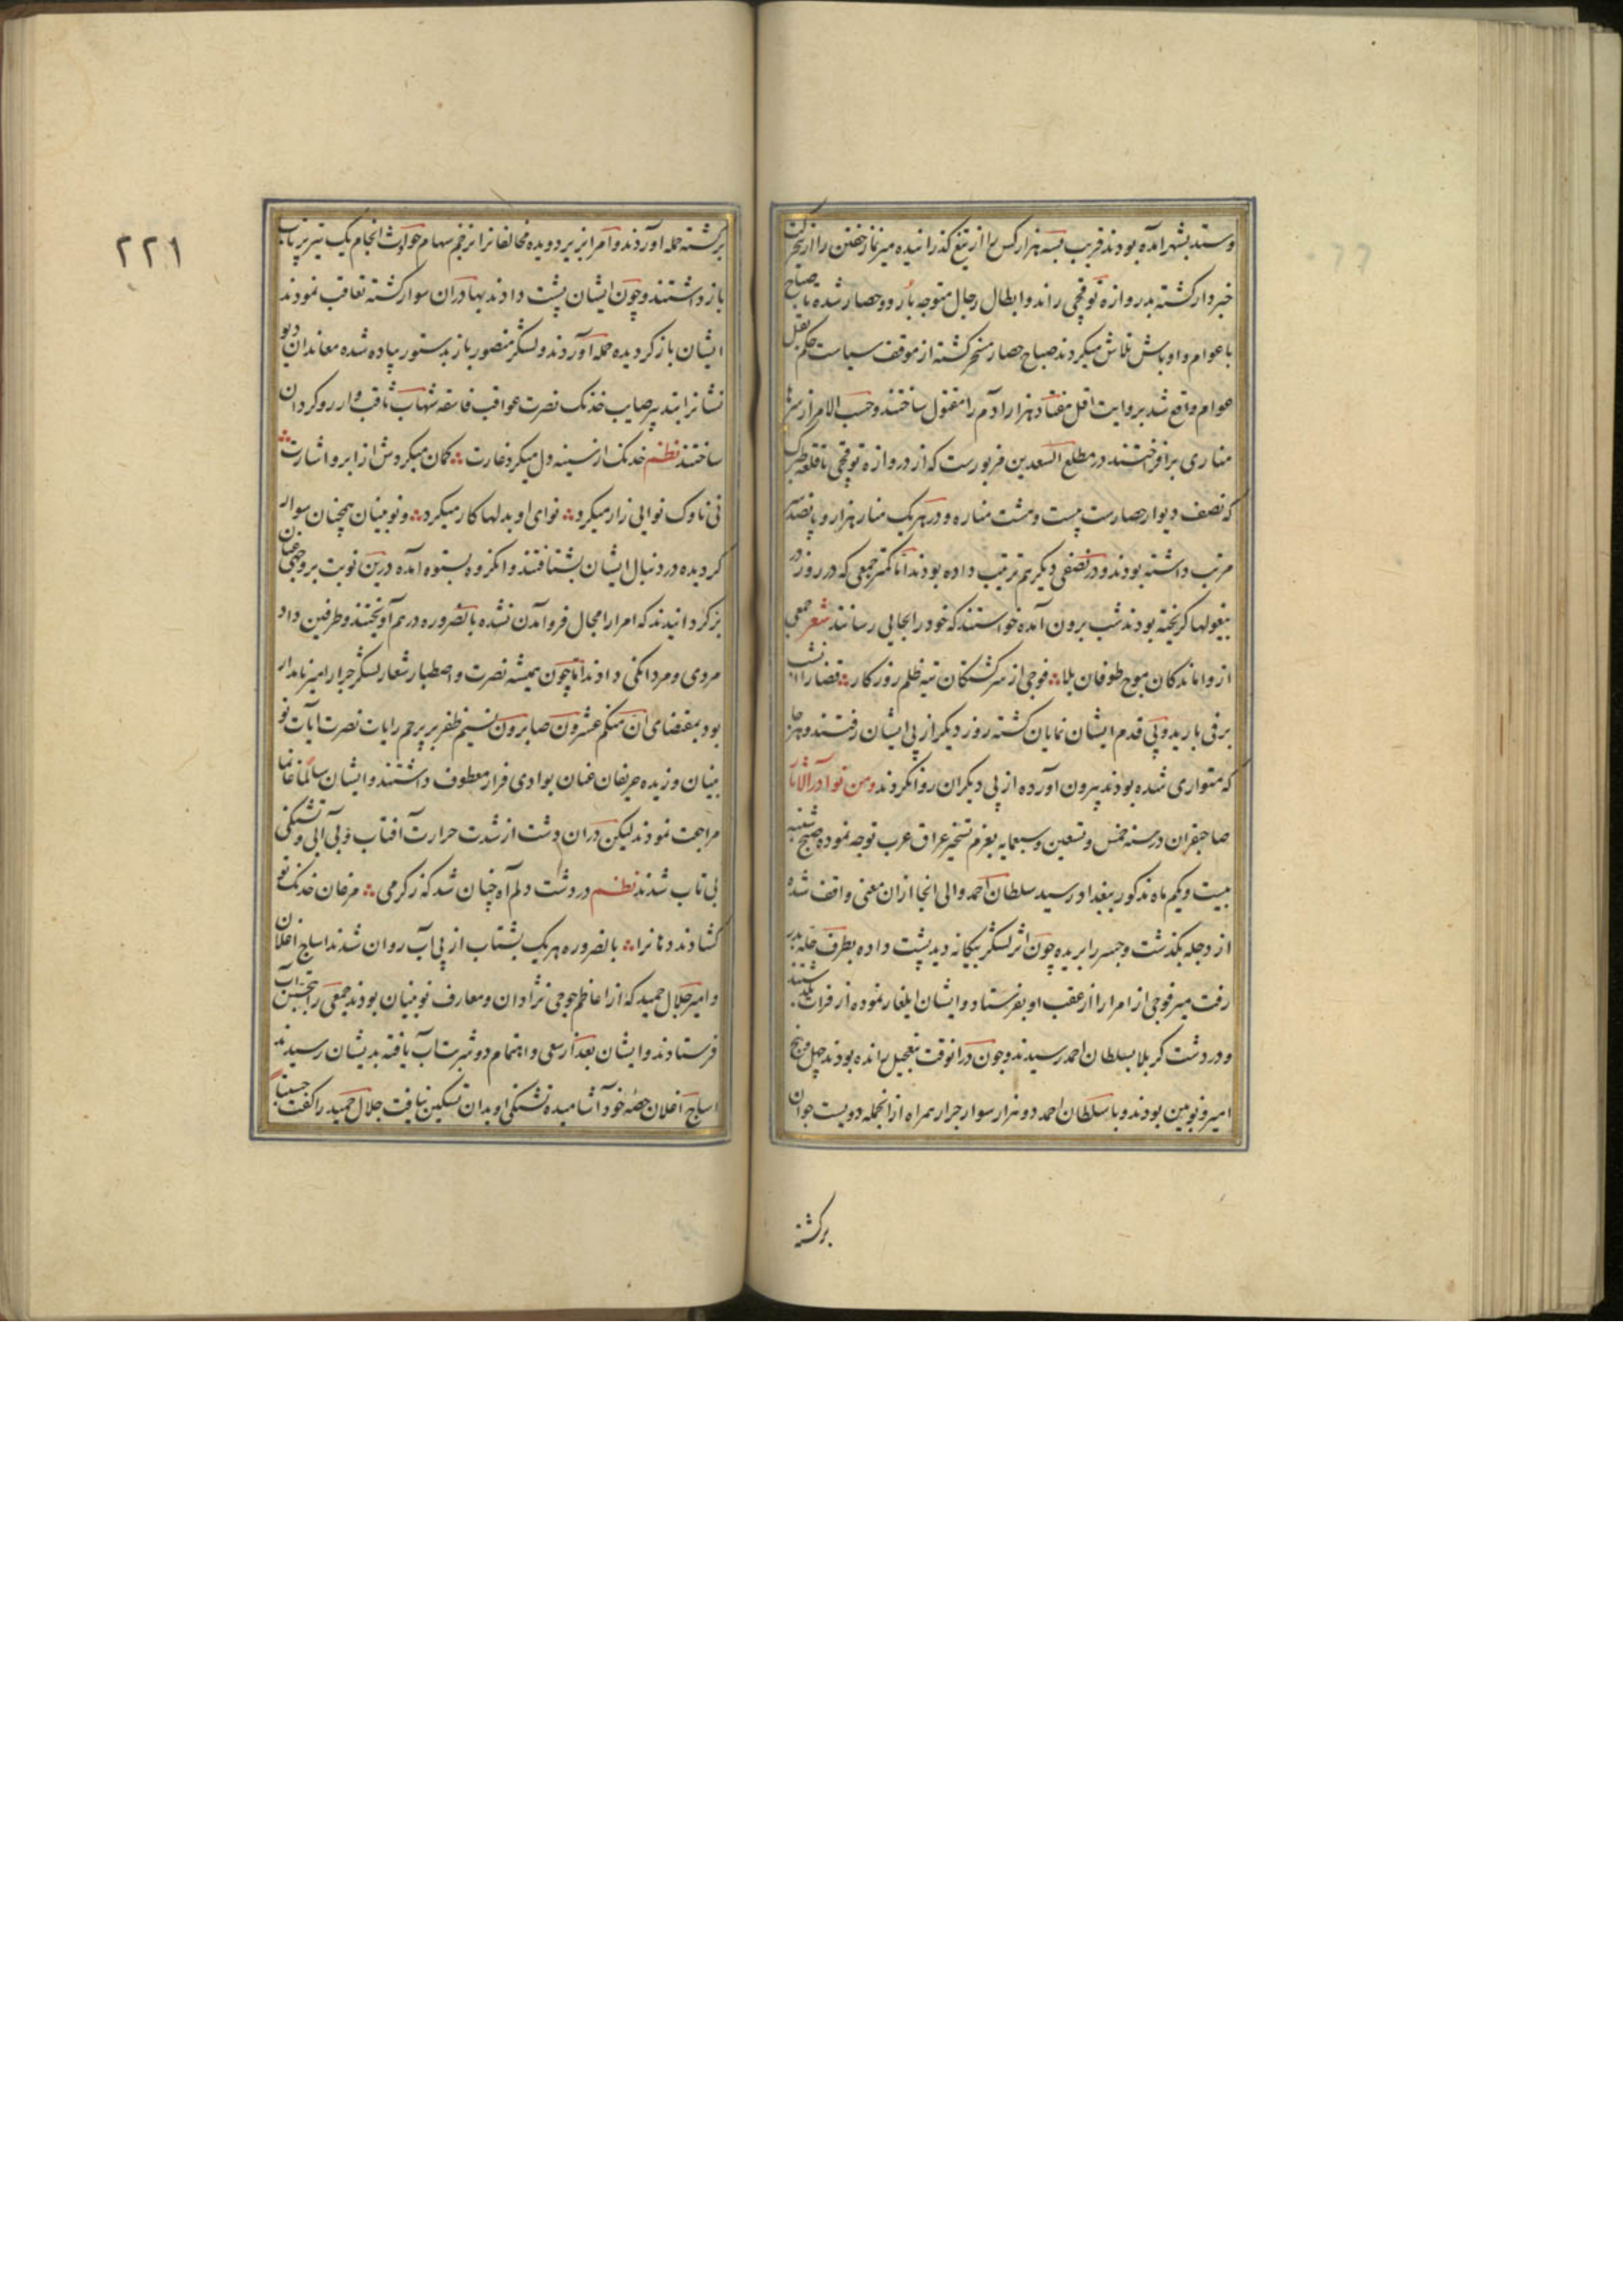 وستد بشهر آمده بودند قریب بسه هزار کس را از تیغ گذرانیده میر نماز خفتن را ازین
خبردار کشته بدروازه توقچی راند و ابطال رجال متوجه بارو و حصار شده تا صباح
با عوام و اوباش تلاش میکردند صباح حصار مسخر کشته از موقف سیاست حکم بقتل
عوام واقع شد بروایت اقل هفتاد هزار آدم را مقتول ساختند و حسب الامر از سرها
مناری برافراختند در مطلع السعدین مزبورست که از دروازه توقچی تا قلعه طبرک
که نصف دیوار حصارست بیست و هشت مناره و در هر یک منار هزار و پانصد سر
مرتب داشته بودند و در نصفی دیگر هم ترتیب داده بودند اما کمتر جمعی که در روز در
بیغولها کریخته بودند شب برون آمده خواستند که خود را بجایی رسانند شعر جمعی
از واماندکان موج طوفان بلا فوجی از سرکشتکان تیه ظلم روزکار قضا را آن شب
برفی بارید و پی قدم ایشان نمایان کشته روز دیگر از پی ایشان رفتند و هر جا
که متواری شده بودند بیرون آورده از پی دیکران روانکردند ومن نوادر الاثار
صاحبقران در سنه خمس و تسعین و سبعمایه بعزم تسخیر عراق عرب توجه نموده صبح شنبه
بیست و یکم ماه مذکور ببغداد رسید سلطان احمد والی انجا ازان معنی واقف شده
از دجله بکذشت و جسر را بریده چون اثر لشکر بیکانه دید پشت داده بطرف حله بدر
رفت میر فوجی از امرا را از عقب او بفرستاد و ایشان ایلغار نموده از فرات بگذشتند
و در دشت کربلا بسلطان احمد رسیدند و چون درانوقت بتعجیل رانده بودند چهل و پنج
امیر و نویین بودند و با سلطان احمد دو هزار سوار جرار همراه از انجمله دویست جوان
برکشته
۲۲۱
برکشته حمله آوردند و امرا بزیر دویده مخالفانرا بزخم سهام حوادث انجام یک تیر پرتاب
باز داشتند و چون ایشان پشت دادند بهادران سوار کشته تعاقب نمودند
ایشان باز کردیده حمله آوردند و لشکر منصور باز بدستور پیاده شده معاندان دیو
نشانرا بتیر صایب خدنک نصرت عواقب فاتبعه شهاب ثاقب وار روکردان
ساختند نظم خدنک از سینه دل میکرد غارت کمان میکردش از ابرو اشارت
نی ناوک نوایی زار میکرد نوای او بدلها کار میکرد و نویینان همچنان سوار
کردیده در دنبال ایشان بشتافتند و انکروه بستوه آمده درین نوبت بر وجهی عنان
برکردانیدند که امرا را مجال فرو آمدن نشده بالضروره در هم آویختند و طرفین داد
مردی و مردانکی دادند اما چون همیشه نصرت و اصطبار شعار لشکر جرار امیر نامدار
بود بمقتضای ان منکم عشرون صابرون نسیم ظفر بر پرچم رایات نصرت آیات نو
یینان وزیده حریفان عنان بوادی فرار معطوف داشتند و ایشان سالما غانما
مراجعت نمودند لیکن دران دشت از شدت حرارت آفتاب و بی آبی و تشنکی
بی تاب شدند نظم در دشت دلم آه چنان شد که ز کرمی مرغان خدنک تو
کشادند دهانرا بالضروره هر یک بشتاب از پی آب روان شدند اساج اغلان
و امیر جلال حمید که از اعاظم جوجی نژادان و معارف نویینان بودند جمعی را بجستن آب
فرستادند و ایشان بعد از سعی و اهتمام دو شربت آب یافته بدیشان رسیدند
اساج اغلان حصه خود آشامیده تشنکی او بدان تسکین نیافت جلال حمید را کفت